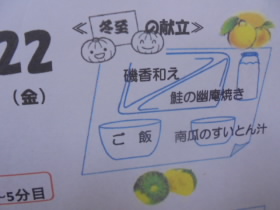 22
(金)
≪ 冬至 の献立≫
磯香和え
鮭の幽庵焼き
ご飯
南瓜のすいとん汁
~5分目